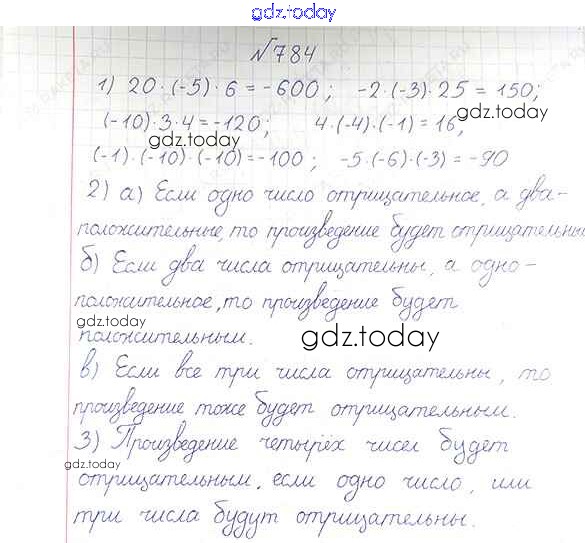 gdz.today
№784
1) 20·(-5)·6=-600; -2·(-3)·25=150;
gdz.today
(-10)·3·4=-120; 4·(-4)·(-1)=16,
gdz.today
(-1)·(-10)·(-10)=-100; -5·(-6)·(-3)=-90
2) а) Если одно число отрицательное, а два-
положительные, то произведение будет отрицательны
gdz.today
б) Если два числа отрицательны, а одно-
положительное, то произведение будет
gdz.today
положительным.
gdz.today
в) Если все три числа отрицательны, то
произведение тоже будет отрицательным.
3) Произведение четырёх чисел будет
gdz.today
отрицательным, если одно число, или
три числа будут отрицательны.